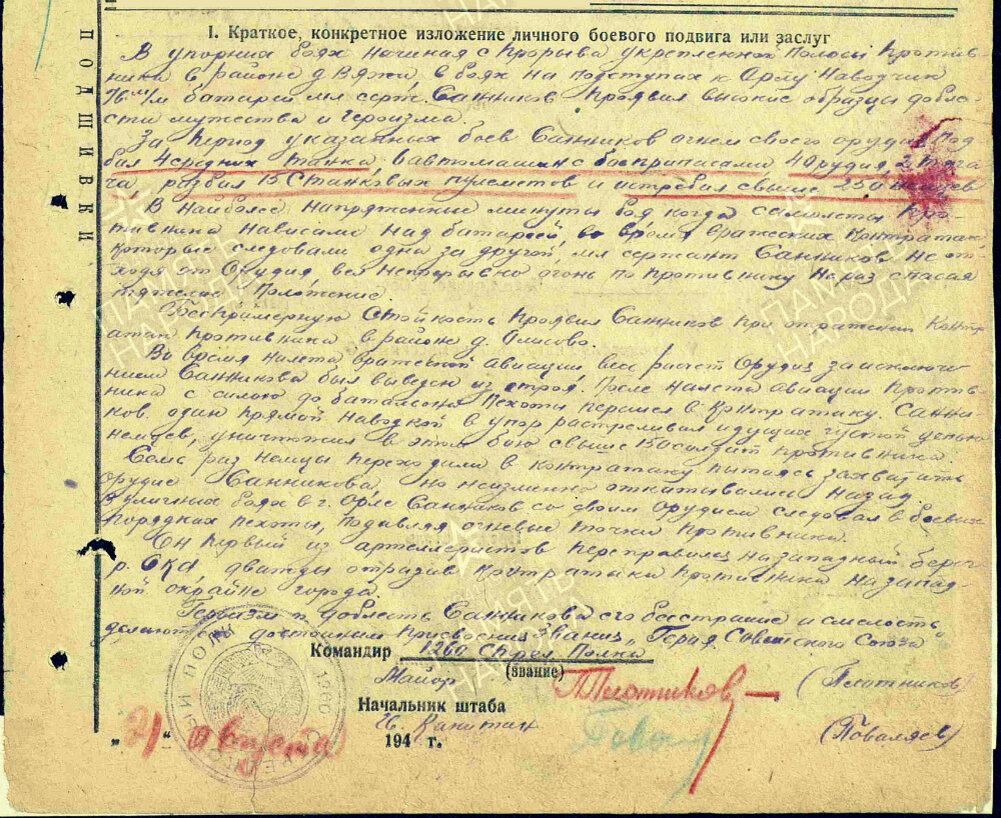 I. Краткое, конкретное изложение личного боевого подвига или заслуг
В упорних боях начиная с прорыва укрепленной полосы против-
ника в районе д. Вяжи, в боях на подступах к Орлу. Наводчик
76 м/м батареи мл. серж. Санников проявил высокие образцы добле-
сти мужества и героизма.
За период указанных боев Санников огнем своего орудия под
бил 4 средних танка, автомашин с боеприпасами 4 орудия, 2 тяга
ча разбил 15 станковых пулеметов и истребил свыше немцев
В наиболее напряженные минуты боя когда самолеты про-
тивника нависали над батареей, во время вражеских контратак,
которые следовали одна за другой, мл. сержант Санников не от-
ходя от орудия, вел непрерывно огонь по противнику не раз спасая
тяжелые положение.
Беспримерную стойкость проявил Санников при отражении контр
атак противника в районе д.
Во время налета вражеской авиации весь расчет орудия за исключе-
нием Санникова был выведен из строя. После налета авиации против-
ника с силою до батальона пехоты перешел в контратаку. Санни-
ков, один прямой наводкой в упор расстреливал идущих густой цепью
немцев, уничтожил в этом бою свыше 150 солдат противника.
Семь раз немцы переходили в контратаку пытаясь захватить
орудие Санникова но неизменно откатывались назад.
В уличных боях в г. Орле Санников со своим орудием следовал в боевых
порядках пехоты, подавляя огневые точки противника.
Он первый из артеллеристов переправился на западный берег
р. Ока дважды отразив контратаки противника на запад-
ной окрайне города.
Героизм и доблесть Санникова его бесстрашие и смелость
делают его достойным присвоения звания "Героя Советского Союза"
Командир 1260 Стрел. Полка
(звание)
Майор Плотников (Плотников)
Начальник штаба
Гв. Капитан (Поваляев)
„21" августа 194 г.
ПОДШИВКИ
ПАМЯТЬ НАРОДА